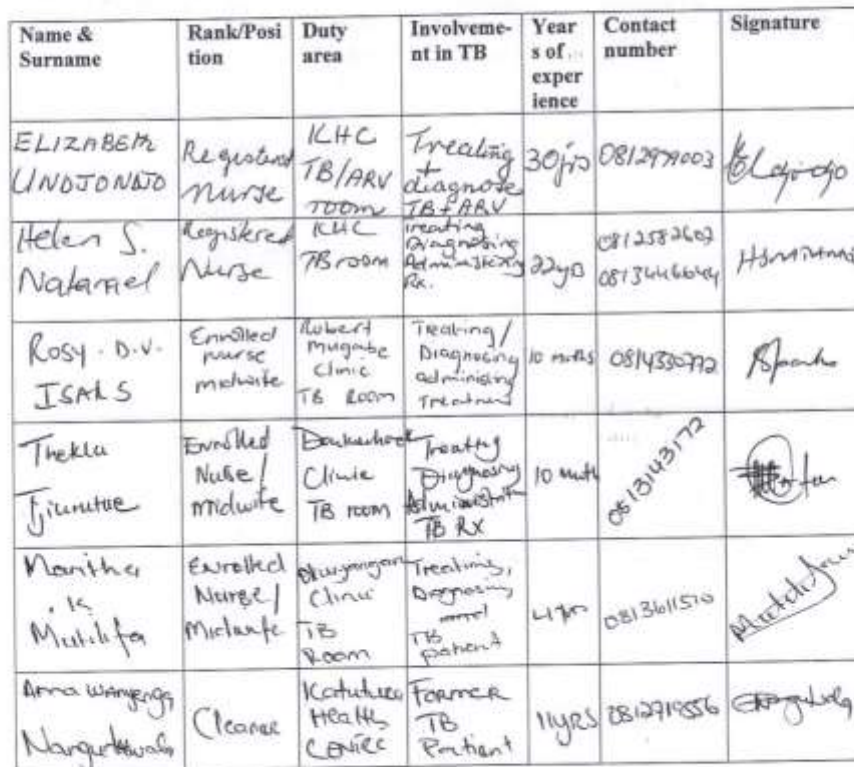 Name & Surname | Rank/Posi tion | Duty area | Involveme- nt in TB | Year s of ... exper ience | Contact number | Signature
ELIZABETH UNDJONDJO | Registered Nurse | KHC TB/ARV room | Treating + diagnose TB + ARV | 30yrs | 0812979003
Helen S. Natanael | Registered Nurse | KHC TB room | Treating Diagnosing Administering Rx. | 22yrs | 0812582602
Rosy. D.V. ISAKS | Enrolled nurse midwife | Robert Mugabe Clinic TB Room | Treating/ Diagnosing administering Treatment | 10 months | 0814330772
Thekla | Enrolled Nurse/ Midwife | Clinic TB room | Treating Diagnosing TB RX | 10 month | 0813143172
Mutilifa | Enrolled Nurse/ Midwife | Clinic TB Room | Treatinis, Diagnosing TB patient | 4 yrs | 0813611510
Anna | Cleaner | Katutura Health CENTRE | Former TB Patient | 11yRS | 0812719556